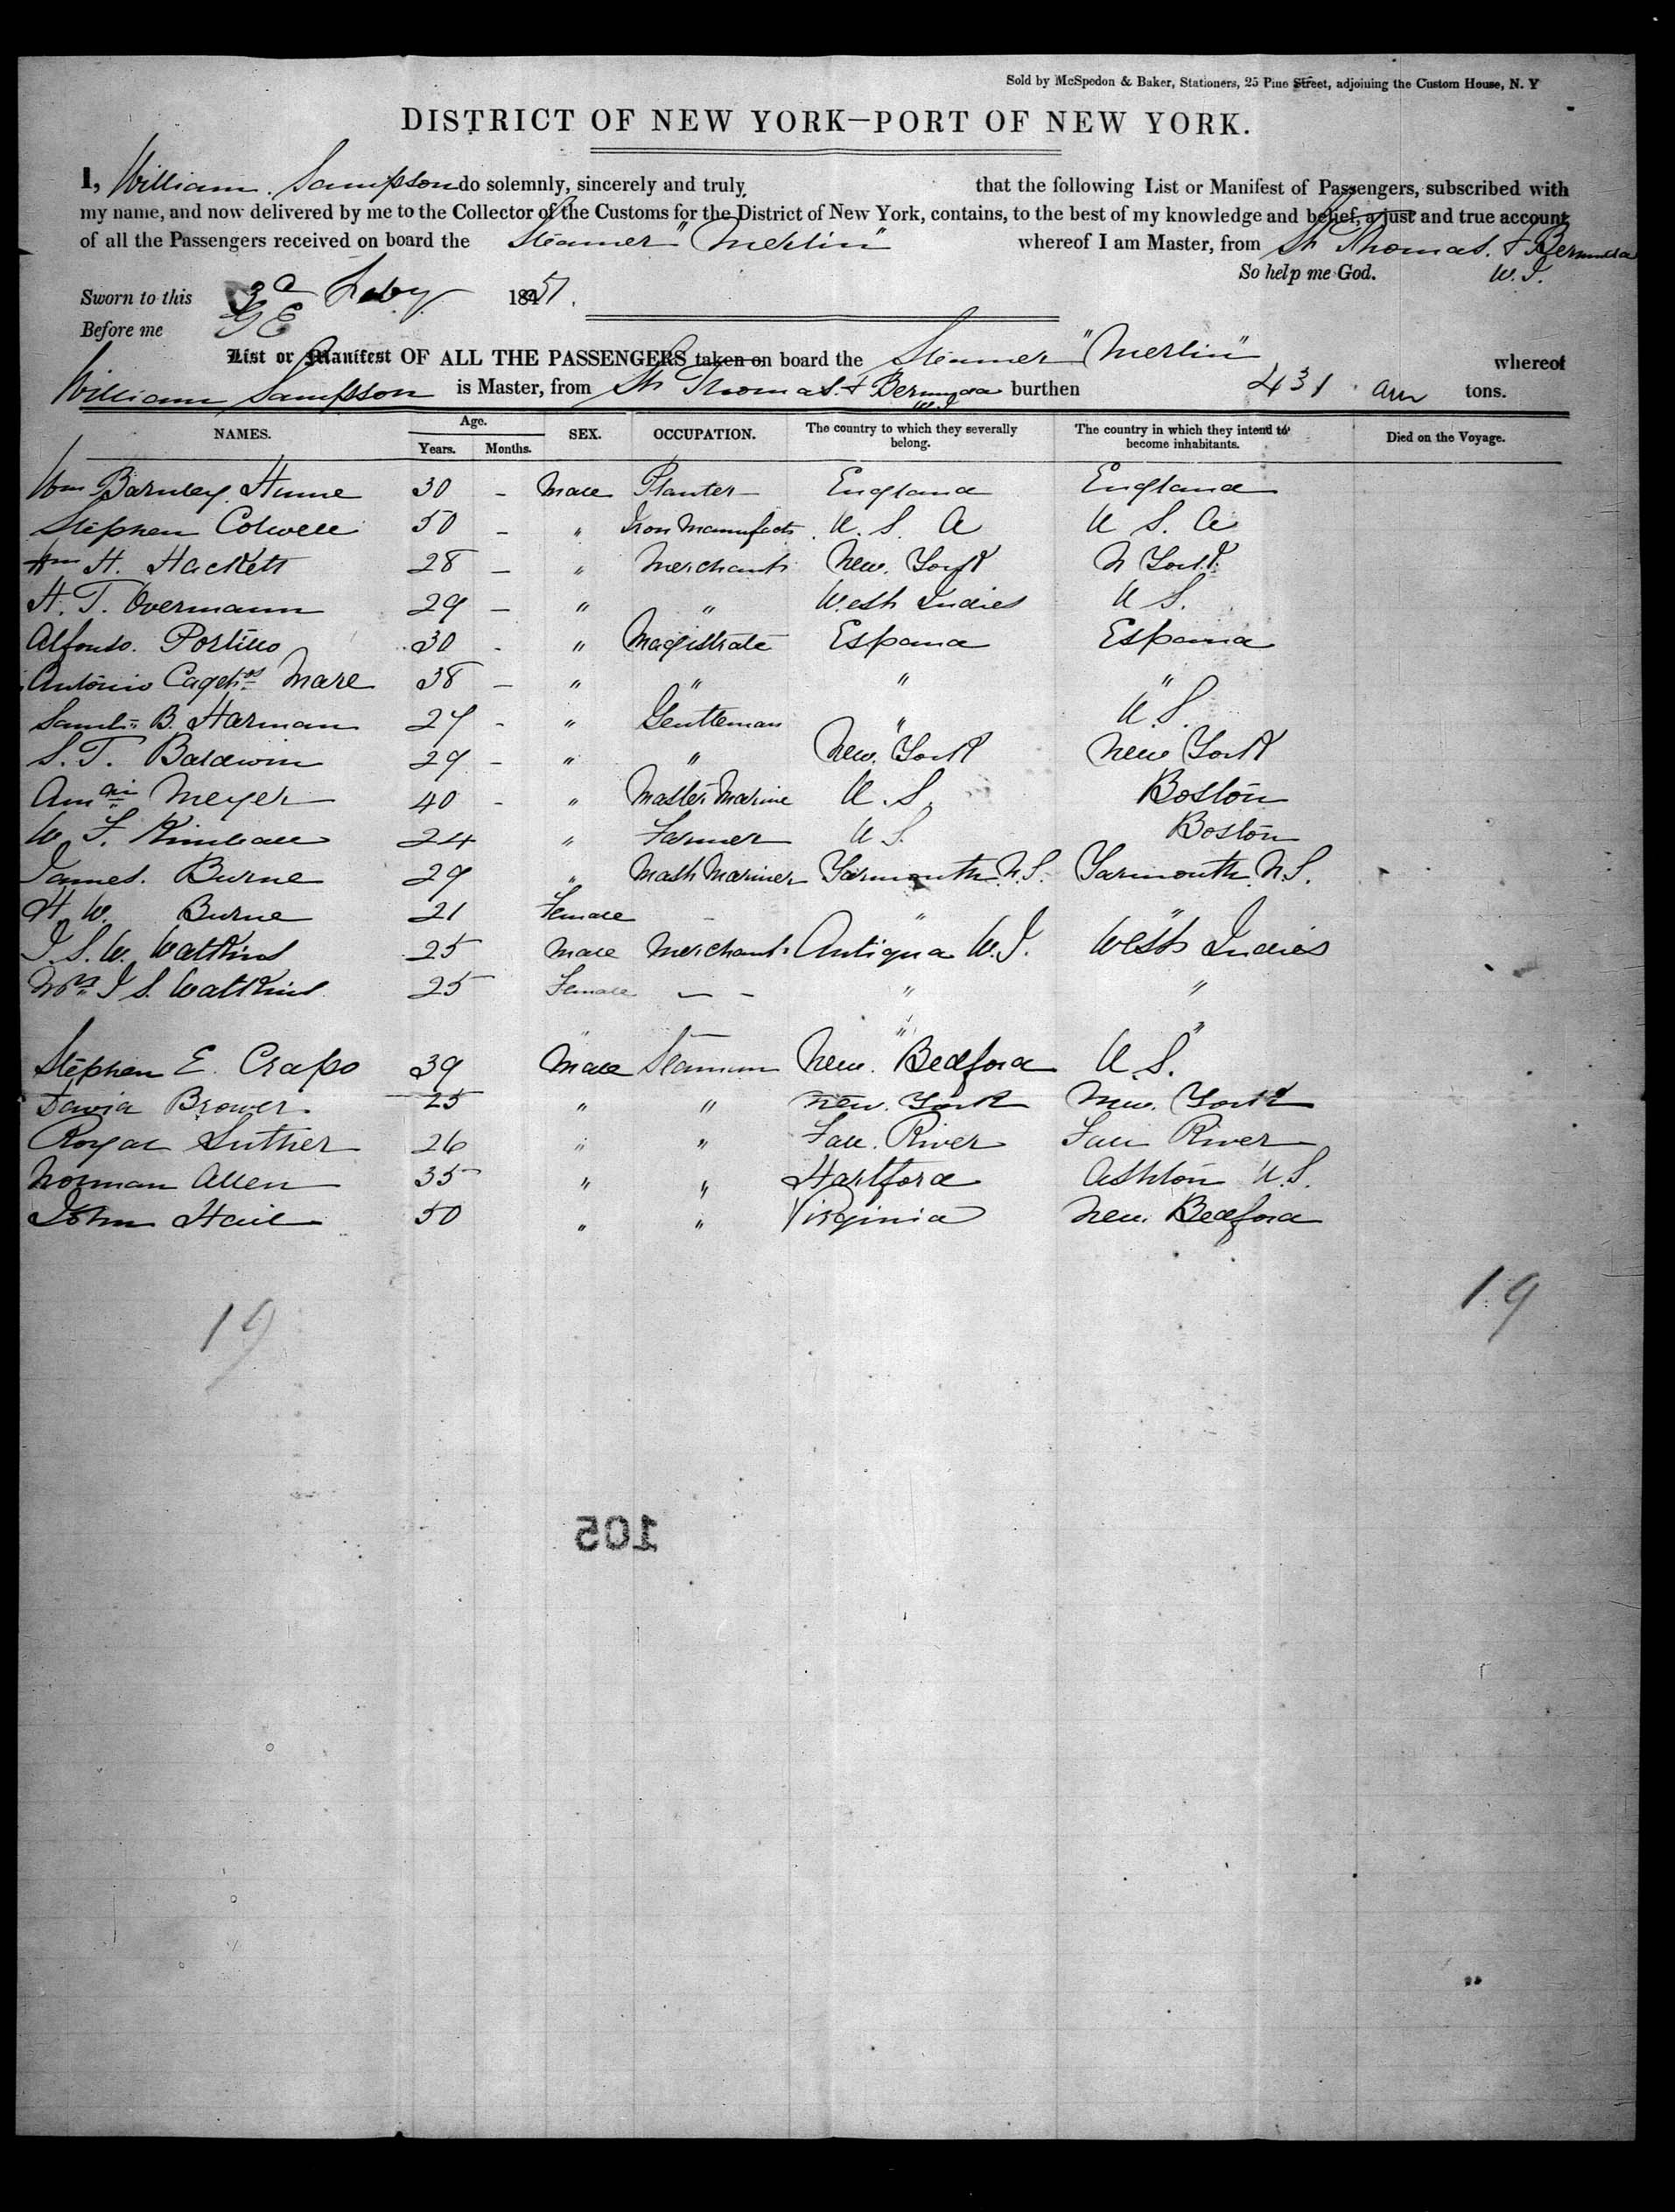 Sold by McSpedon & Baker, Stationers, 25 Pine Street, adjoining the Custom House, N. Y
DISTRICT OF NEW YORK—PORT OF NEW YORK.
I, William Sampson do solemnly, sincerely and truly that the following List or Manifest of Passengers, subscribed with
my name, and now delivered by me to the Collector of the Customs for the District of New York, contains, to the best of my knowledge and belief, a just and true account
of all the Passengers received on board the Steamer "Merlin" whereof I am Master, from St Thomas. & Bermuda
So help me God. W. I.
Sworn to this 3d Feby 1851.
Before me G E
List or Manifest OF ALL THE PASSENGERS taken on board the Steamer "Merlin" whereof
William Sampson is Master, from St Thomas. & Bermuda W.I burthen 431 tons.
NAMES. Age. Years. Months. SEX. OCCUPATION. The country to which they severally belong. The country in which they intend to become inhabitants. Died on the Voyage.
Wm Barnley Hume 30 - Male Planter England England
Stephen Colwell 50 - " Iron Manufactr U. S. A U S. A
Wm H. Hackett 28 - " Merchant New. York N York
H. T. Overmann 29 - " " West Indies U S.
Alfonso. Portillo 30 - " Magistrate Espana Espana
Antonio Mare 38 - " " " "
Saml. B. Harman 27 - " Gentleman " U.S.
S. T. Baldwin 29 - " " New. York New York
Meyer 40 - " Master Marine U. S. Boston
W. F. Kimball 24 " Farmer U S. Boston
James. Burne 29 " Mastr Mariner Yarmouth N.S. Yarmouth N.S.
H. W. Burne 21 Female - " "
J. S. W. Watkins 25 Male Merchant Antigua W.I. West Indies
Mrs J S. Watkins 25 Female — - " "
" "
Stephen E. Crapo 39 Male Seaman New. Bedford U. S.
David Brower. 25 " " New. York New. York
Royal Luther 26 " " Fall River Fall River
Norman Allen 35 " " Hartford Ashton U.S.
John Hail 50 " " Virginia New. Bedford
19 19
105